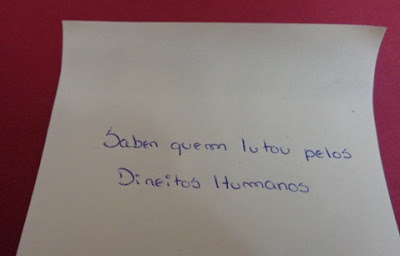 Saber quem lutou pelos
Direitos Humanos